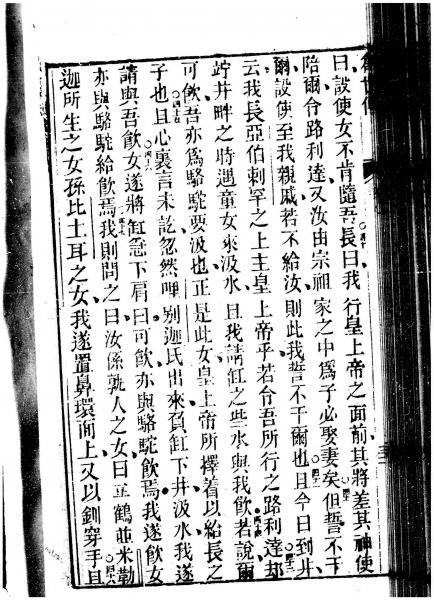 曰設使女不肯隨吾長曰我行皇上帝之面前其將差其神使
陪爾令路利達又汝由宗祖家之中為子必娶妻矣但誓不干
爾設使至我親戚若不給汝則此我誓不干爾也且今日到井
云我長亞伯剌罕之上主皇上帝乎若令吾所行之路利達却
竚井畔之時遇童女來汲水且我請缸之些水與我飲若說爾
可飲吾亦為駱駝要汲也正是此女皇上帝所擇着以給長之
子也且心裏言未訖忽然哩别迦氏出來負缸下井汲水我遂
請與吾飲女遂將缸急下肩曰可飲亦與駱駝飲焉我遂飲女
亦與駱駝給飲焉我則問之曰汝係孰人之女曰彐鶴並米勒
迦所生之女孫比土耳之女我遂置鼻環面上又以釧穿手且